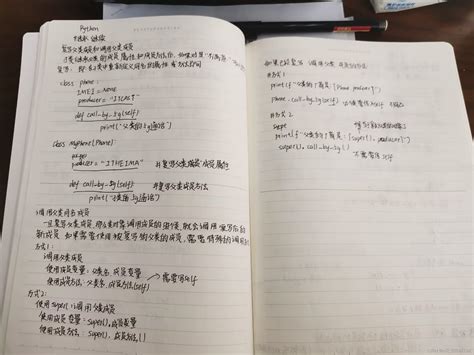 Python
复写父类成员和调用父类成员
子类继承父类的成员属性和成员方法后，如果对其“不满意”
复写：即在子类中重新定义同名的属性或方法即可
class phone:
IMEI = None
producer = "ITCAST"
def call_by_5g(self)
print("父类的5g通话")
class MyPhone(Phone):
producer = "ITHEIMA" #复写父类成员属性
def call_by_5g(self) #复写父类成员方法
print("子类的5g通话")
调用父类同名成员
一旦复写父类成员，那么类对象调用成员的时候，就会调用复写后的
新成员 如果需要使用被复写的父类的成员，需要特殊的调用方式
方式1：
调用父类成员
使用成员变量：父类名.成员变量
使用成员方法：父类名.成员方法(self) 需要写self
方式2：
使用super()调用父类成员
使用成员变量：super().成员变量
使用成员方法：super().成员方法()
#方式1
print(f"父类的厂商是:{Phone.producer}")
phone.call_by_5g(self)
#方式2
print(f"父类的厂商是:{super().producer}")
super().call_by_5g()
不需要写self